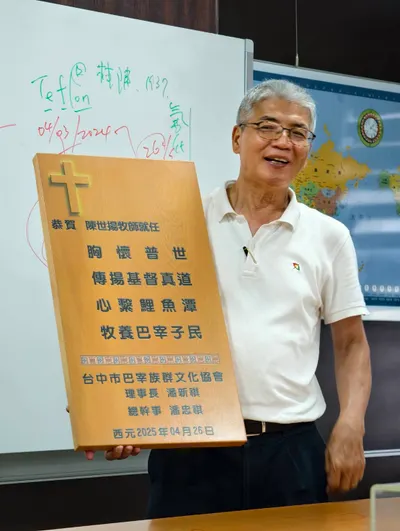 Teflon
04/03/2024
恭賀 陳世揚牧師就任
胸懷普世
傳揚基督真道
心繫鯉魚潭
牧養巴宰子民
台中市巴宰族群文化協會
理事長 潘昕祺
總幹事 潘忠祺
西元2025年04月26日